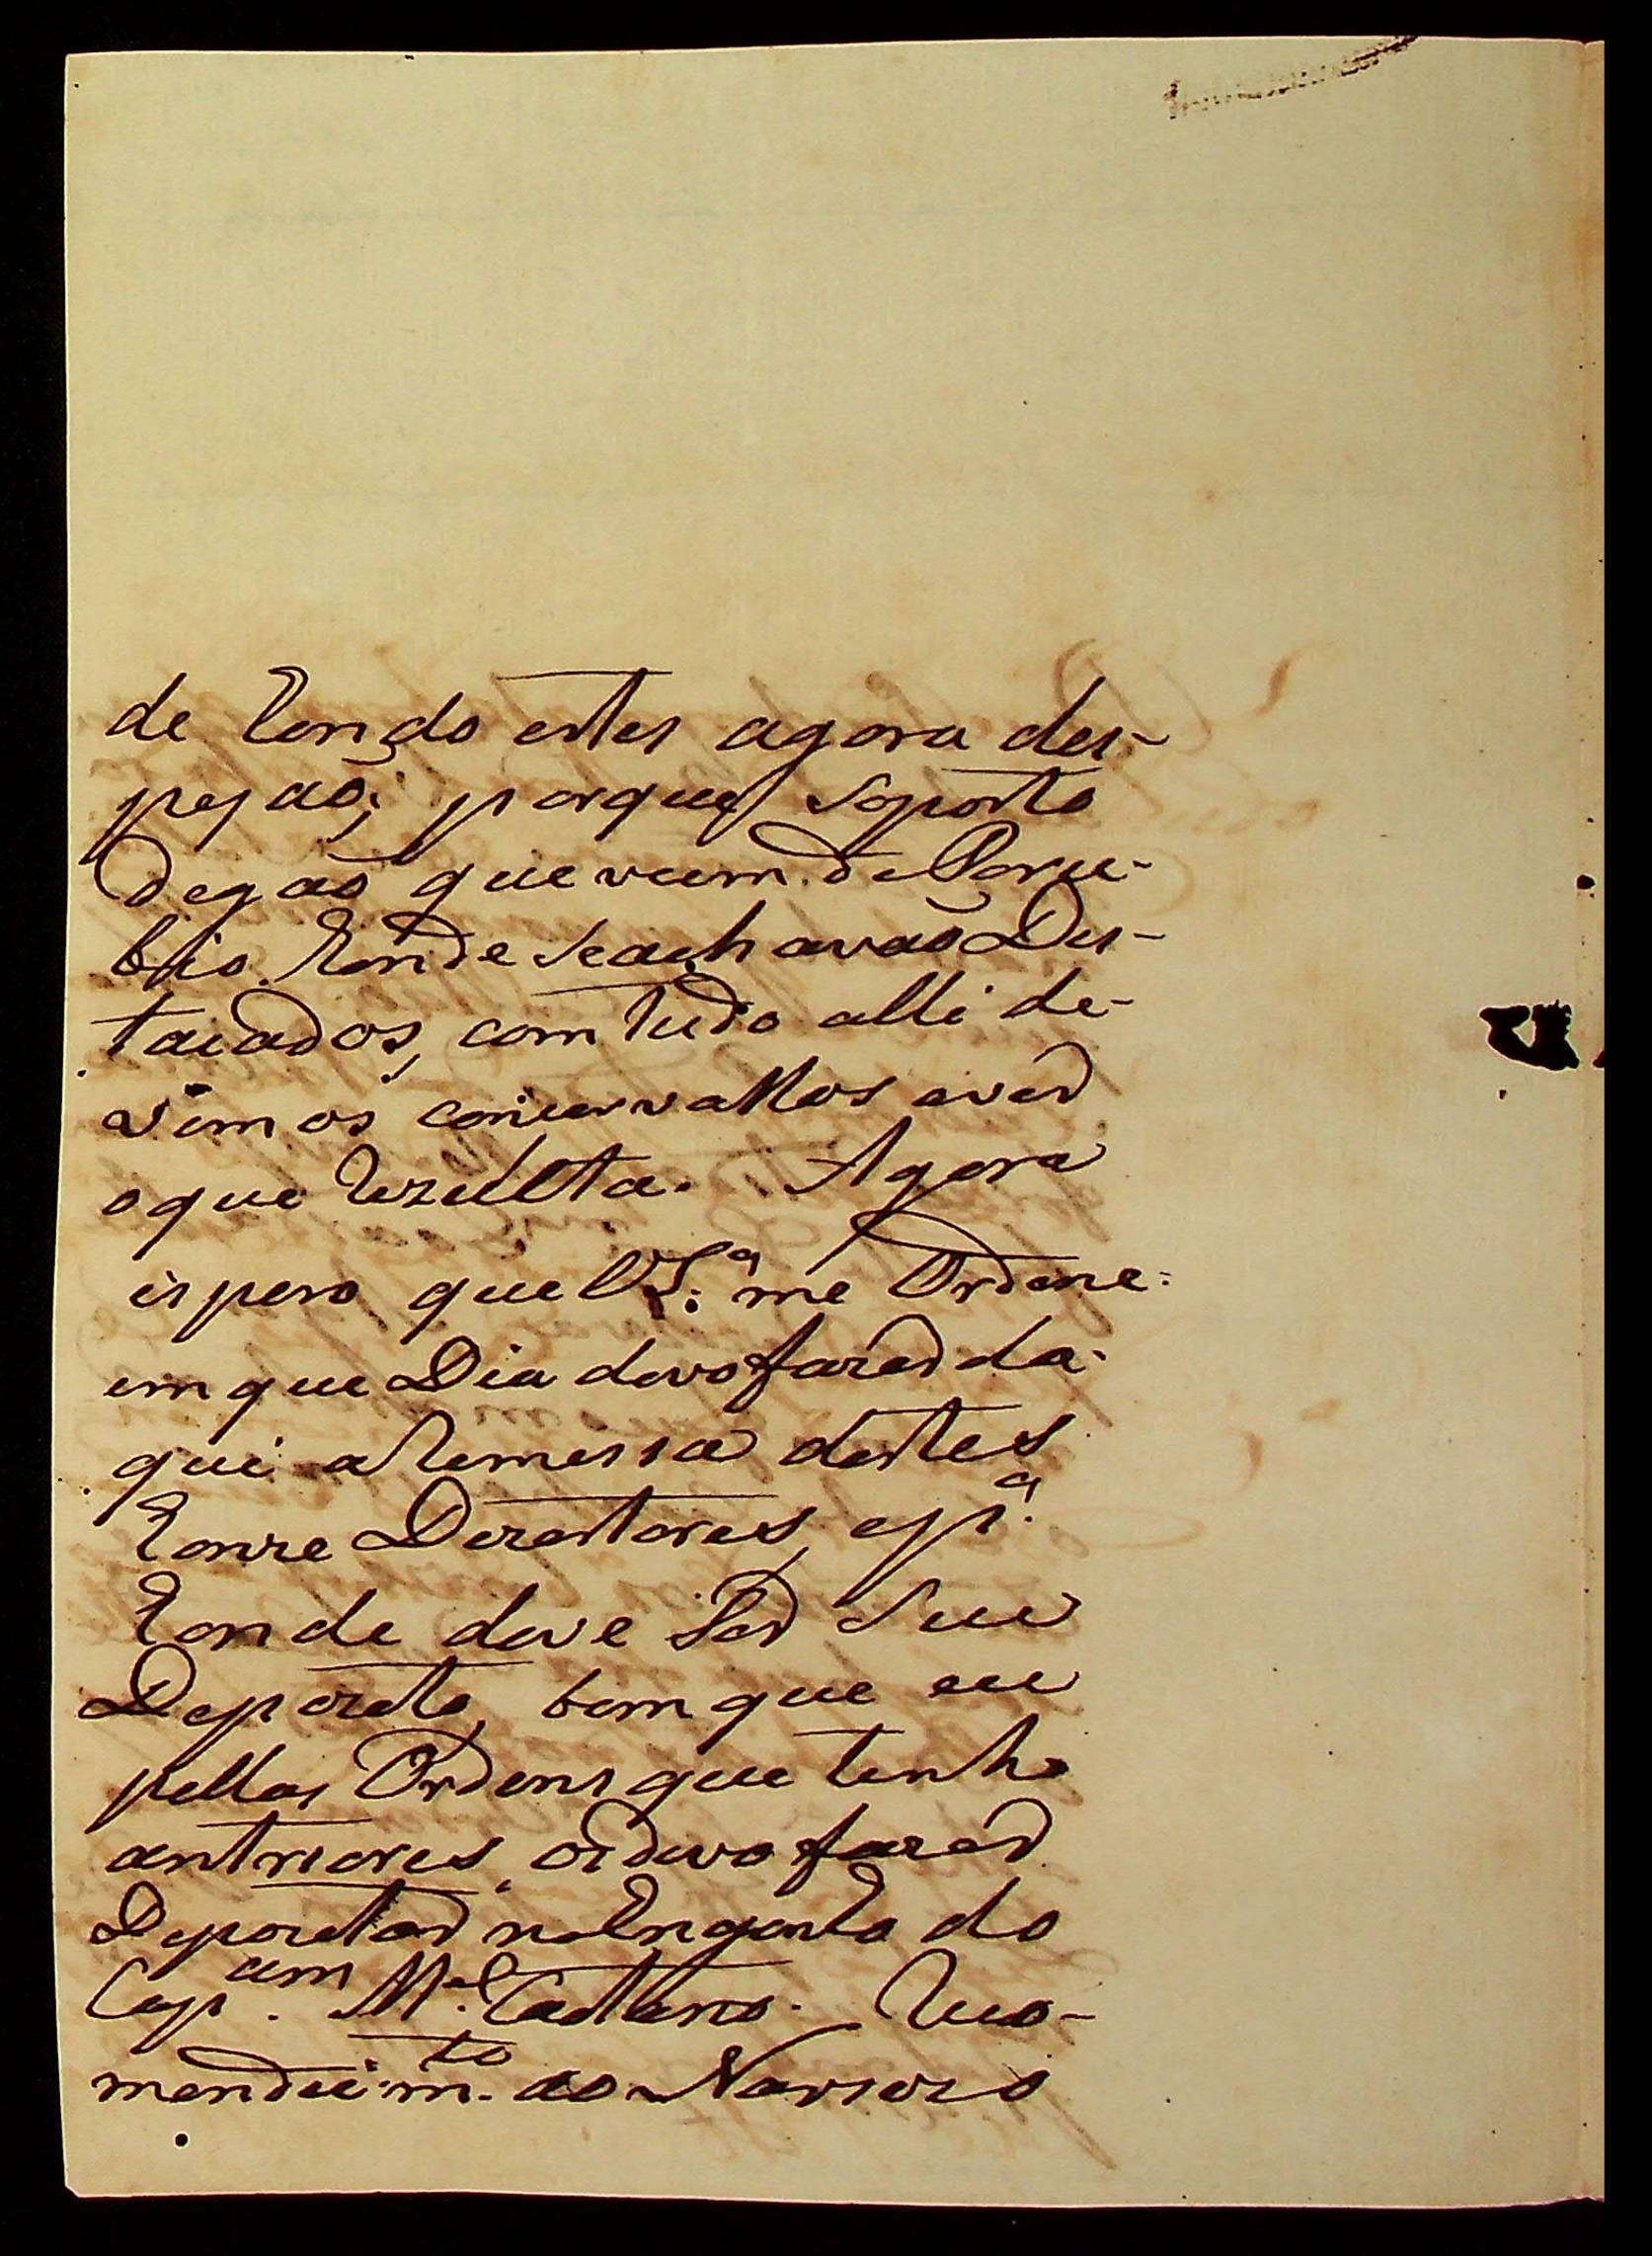 de hondo estes agora des-
pejaõ; porque Soposto
degaõ que veem de Peru-
bio honde Seachavaõ Des-
tacados, comtudo alli de-
vemos conservallos aver
oque rezulta. Agora
ispero que VS.ª me Ordene
em que Dia devo fazer da-
qui a remessa destes
honze Deretores, e p.ª
honde deve Ser Seu
Depozeto, bem que eu
pellas Ordens que tenho
antriores, os devo fazer
Depozetar no Engenho do
Cap.am M.el Caetano. Reco-
mendei m.to ao Navarro